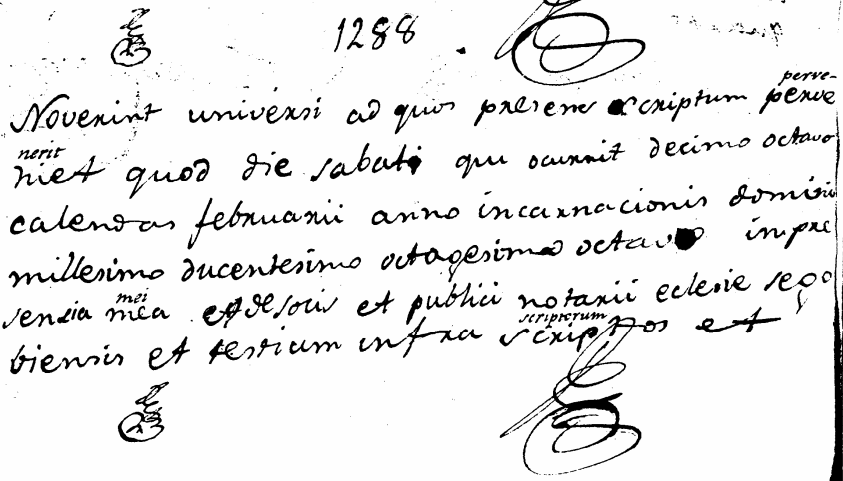 1288
perve-
Noverint universi ad quos presens scriptum perve
nerit
niet quod die sabati qui ocurrit decimo octavo
calendas februarii anno incarnacionis domini
millesimo ducentesimo octagesimo octavo in pre
mei
sensia mea et de socis et publici notarii eclesie sego
scripterum
biensis et testium infra scriptos et